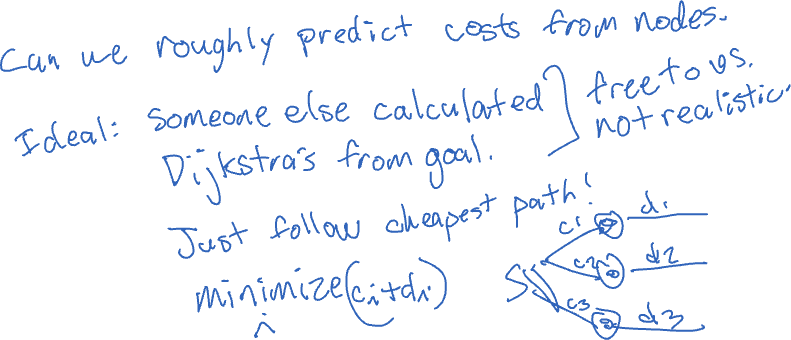 Can we roughly predict costs from nodes.
Ideal: Someone else calculated
Dijkstra's from goal.
free to us.
not realistic.
Just follow cheapest path!
minimize(ci+di)
i
S
c1 d1
c2 d2
c3 d3